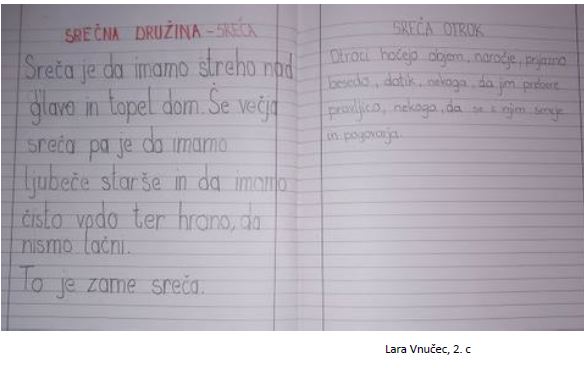 SREČNA DRUŽINA - SREČA
Sreča je da imamo streho nad
glavo in topel dom. Še večja
sreča pa je da imamo
ljubeče starše in da imamo
čisto vodo ter hrano, da
nismo lačni.
To je zame sreča.
SREČA OTROK
Otroci hočejo objem, naročje, prijazno
besedo, dotik, nekoga, da jim prebere
pravljico, nekoga, da se z njim smeje
in pogovarja.
Lara Vnučec, 2. c